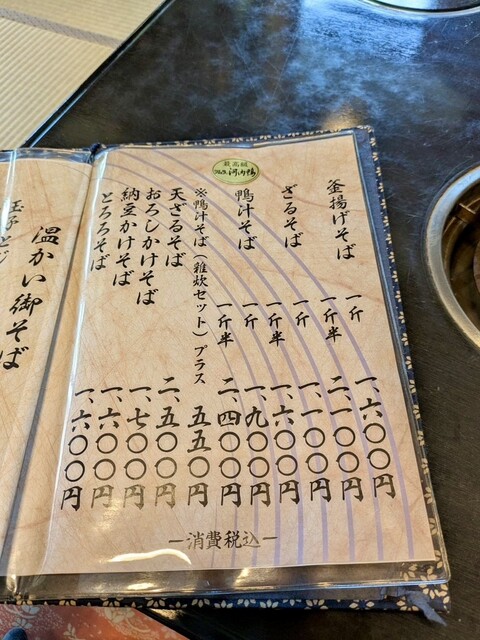 最高級
河内鴨
釜揚げそば 一斤 一、六〇〇円
一斤半 二、一〇〇円
ざるそば 一斤 一、一〇〇円
一斤半 一、六〇〇円
鴨汁そば 一斤 一、九〇〇円
一斤半 二、四〇〇円
※鴨汁そば（雑炊セット）プラス 五五〇円
天ざるそば 二、五〇〇円
おろしかけそば 一、七〇〇円
納豆かけそば 一、六〇〇円
とろろそば 一、六〇〇円
―消費税込―
温かい御そば
玉子とじ